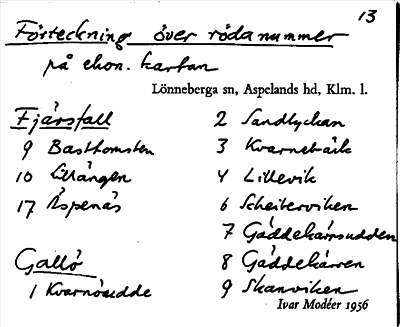 13
Förteckning över röda nummer
på ekon. kartan
Lönneberga sn, Aspelands hd, Klm. l.
Fjärsfall
9 Basthomsten
10 Lillängen
17 Äspenäs
Gallö
1 Kvarnöudde
2 Sandlyckan
3 Kvarnebäck
4 Lillevik
6 Scheiterviken
7 Gäddekärrsudden
8 Gäddekärren
9 Skanviken
Ivar Modéer 1956